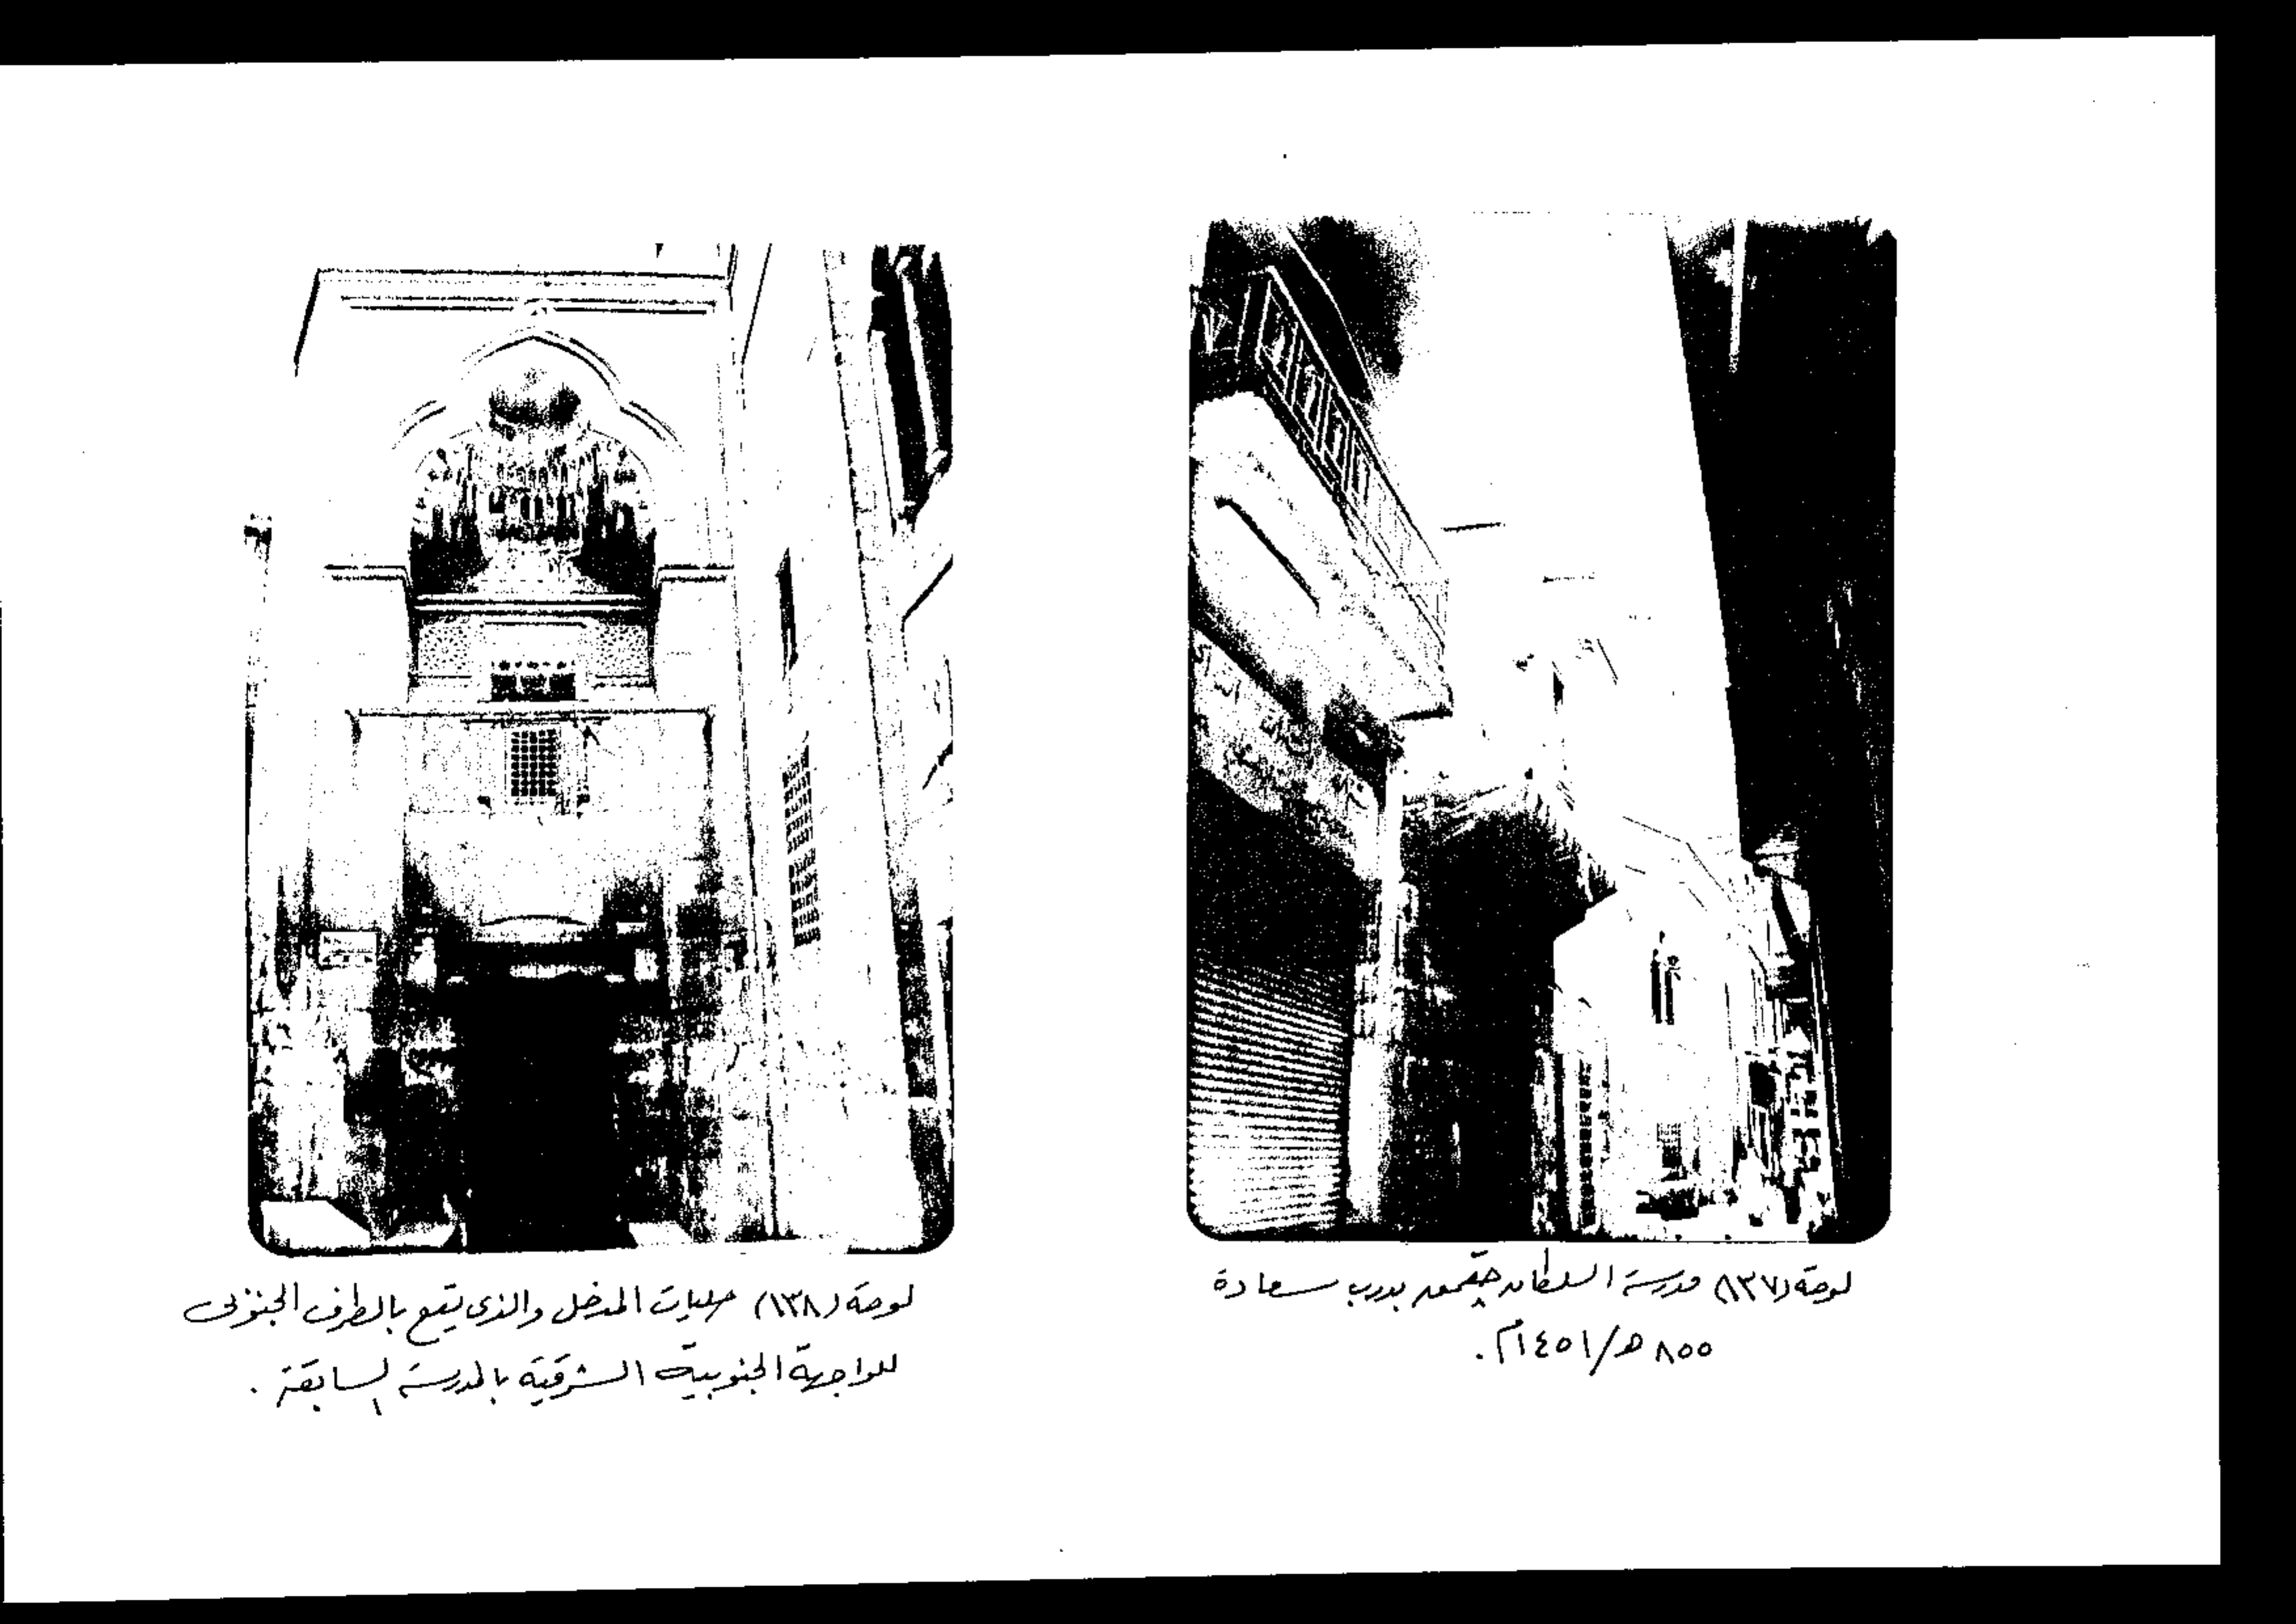 لوحة (١٣٧) مدرسة السلطان جقمق بدرب سعادة
٨٥٥ هـ/١٤٥١م.
لوحة (١٣٨) حليات المدخل والذى يقع بالطرف الجنوبى
للواجهة الجنوبية الشرقية بالمدرسة السابقة .